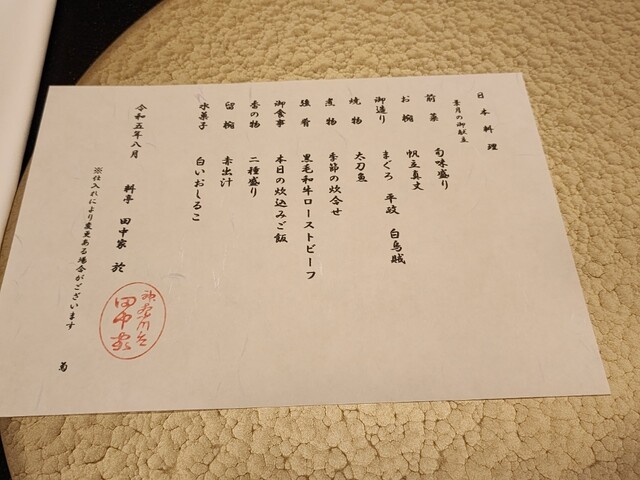 日本料理
葉月の御献立
前菜 旬味盛り
お椀 帆立真丈
御造り まぐろ 平政 白烏賊
焼物 太刀魚
煮物 季節の炊合せ
強肴 黒毛和牛ローストビーフ
御食事 本日の炊込みご飯
香の物 二種盛り
留椀 赤出汁
水菓子 白いおしるこ
令和五年八月 料亭 田中家 於
神奈川台
田中家
※仕入れにより変更ある場合がございます
菊